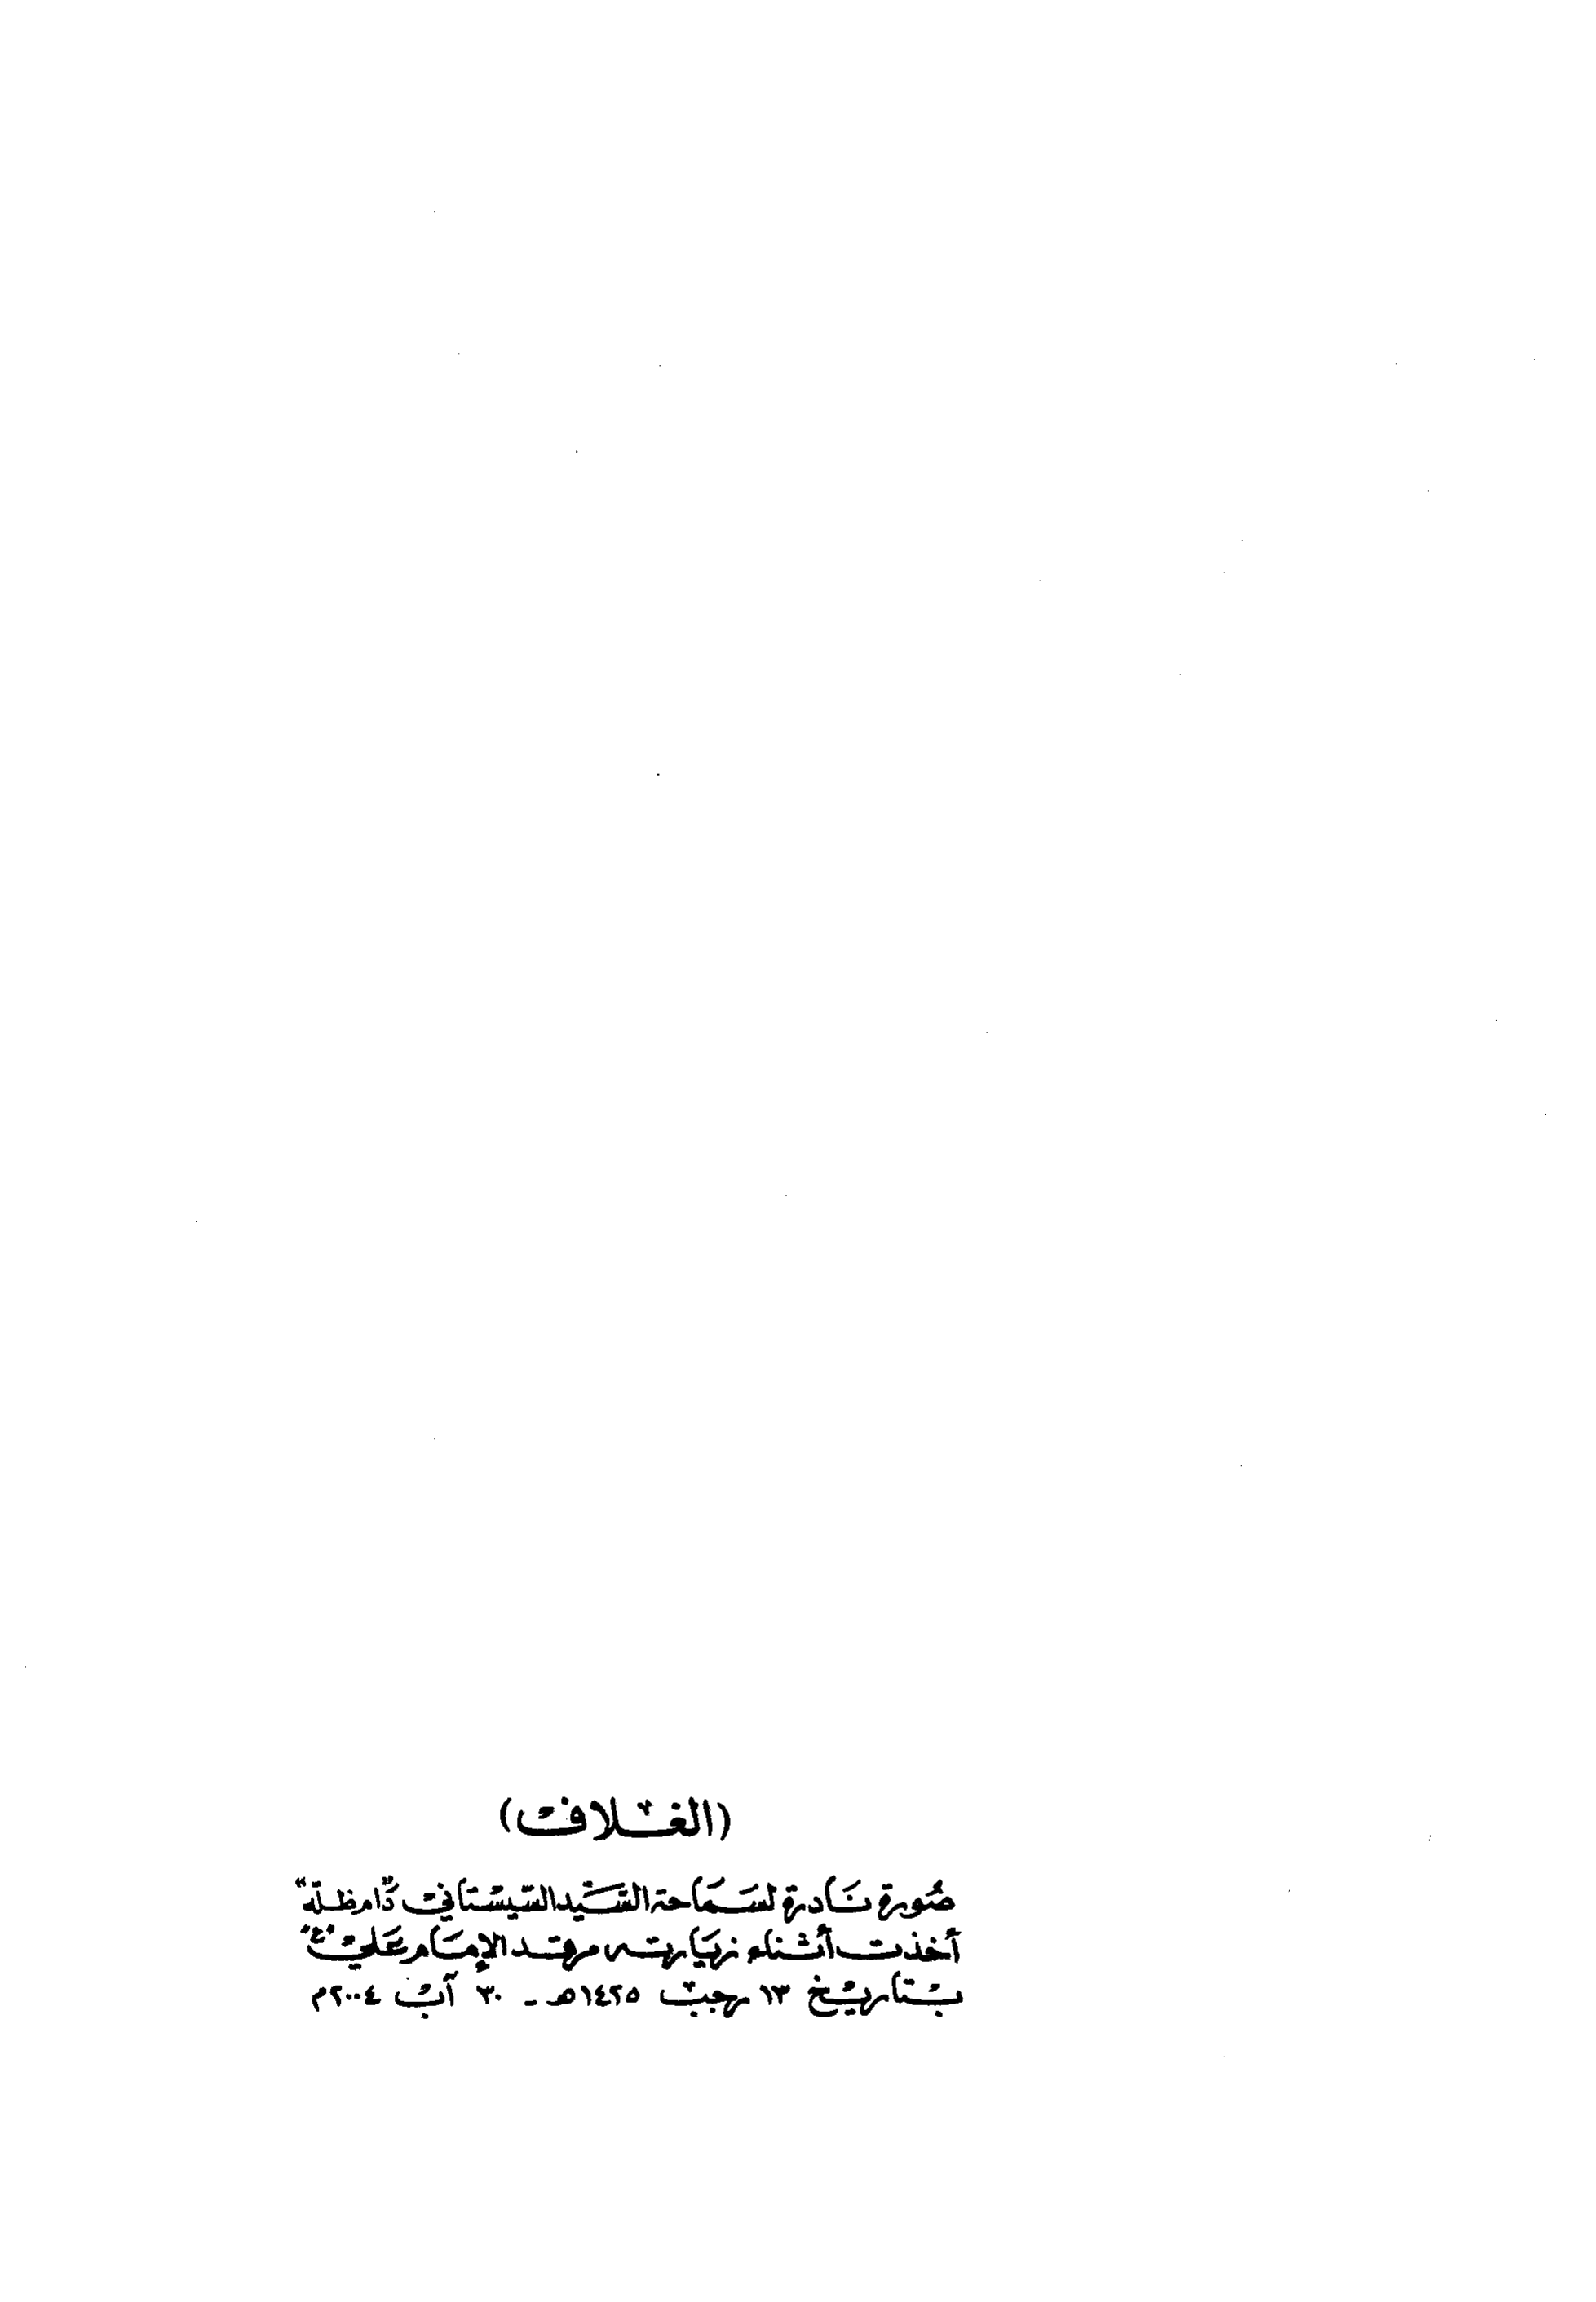 (الغلاف)
صورة نادرة لسماحة السيد السيستاني "دام ظله"
أخذت أثناء زيارته مرقد الإمام علي "ع"
بتاريخ ١٣ رجب ١٤٢٥هـ - ٣٠ آب ٢٠٠٤م